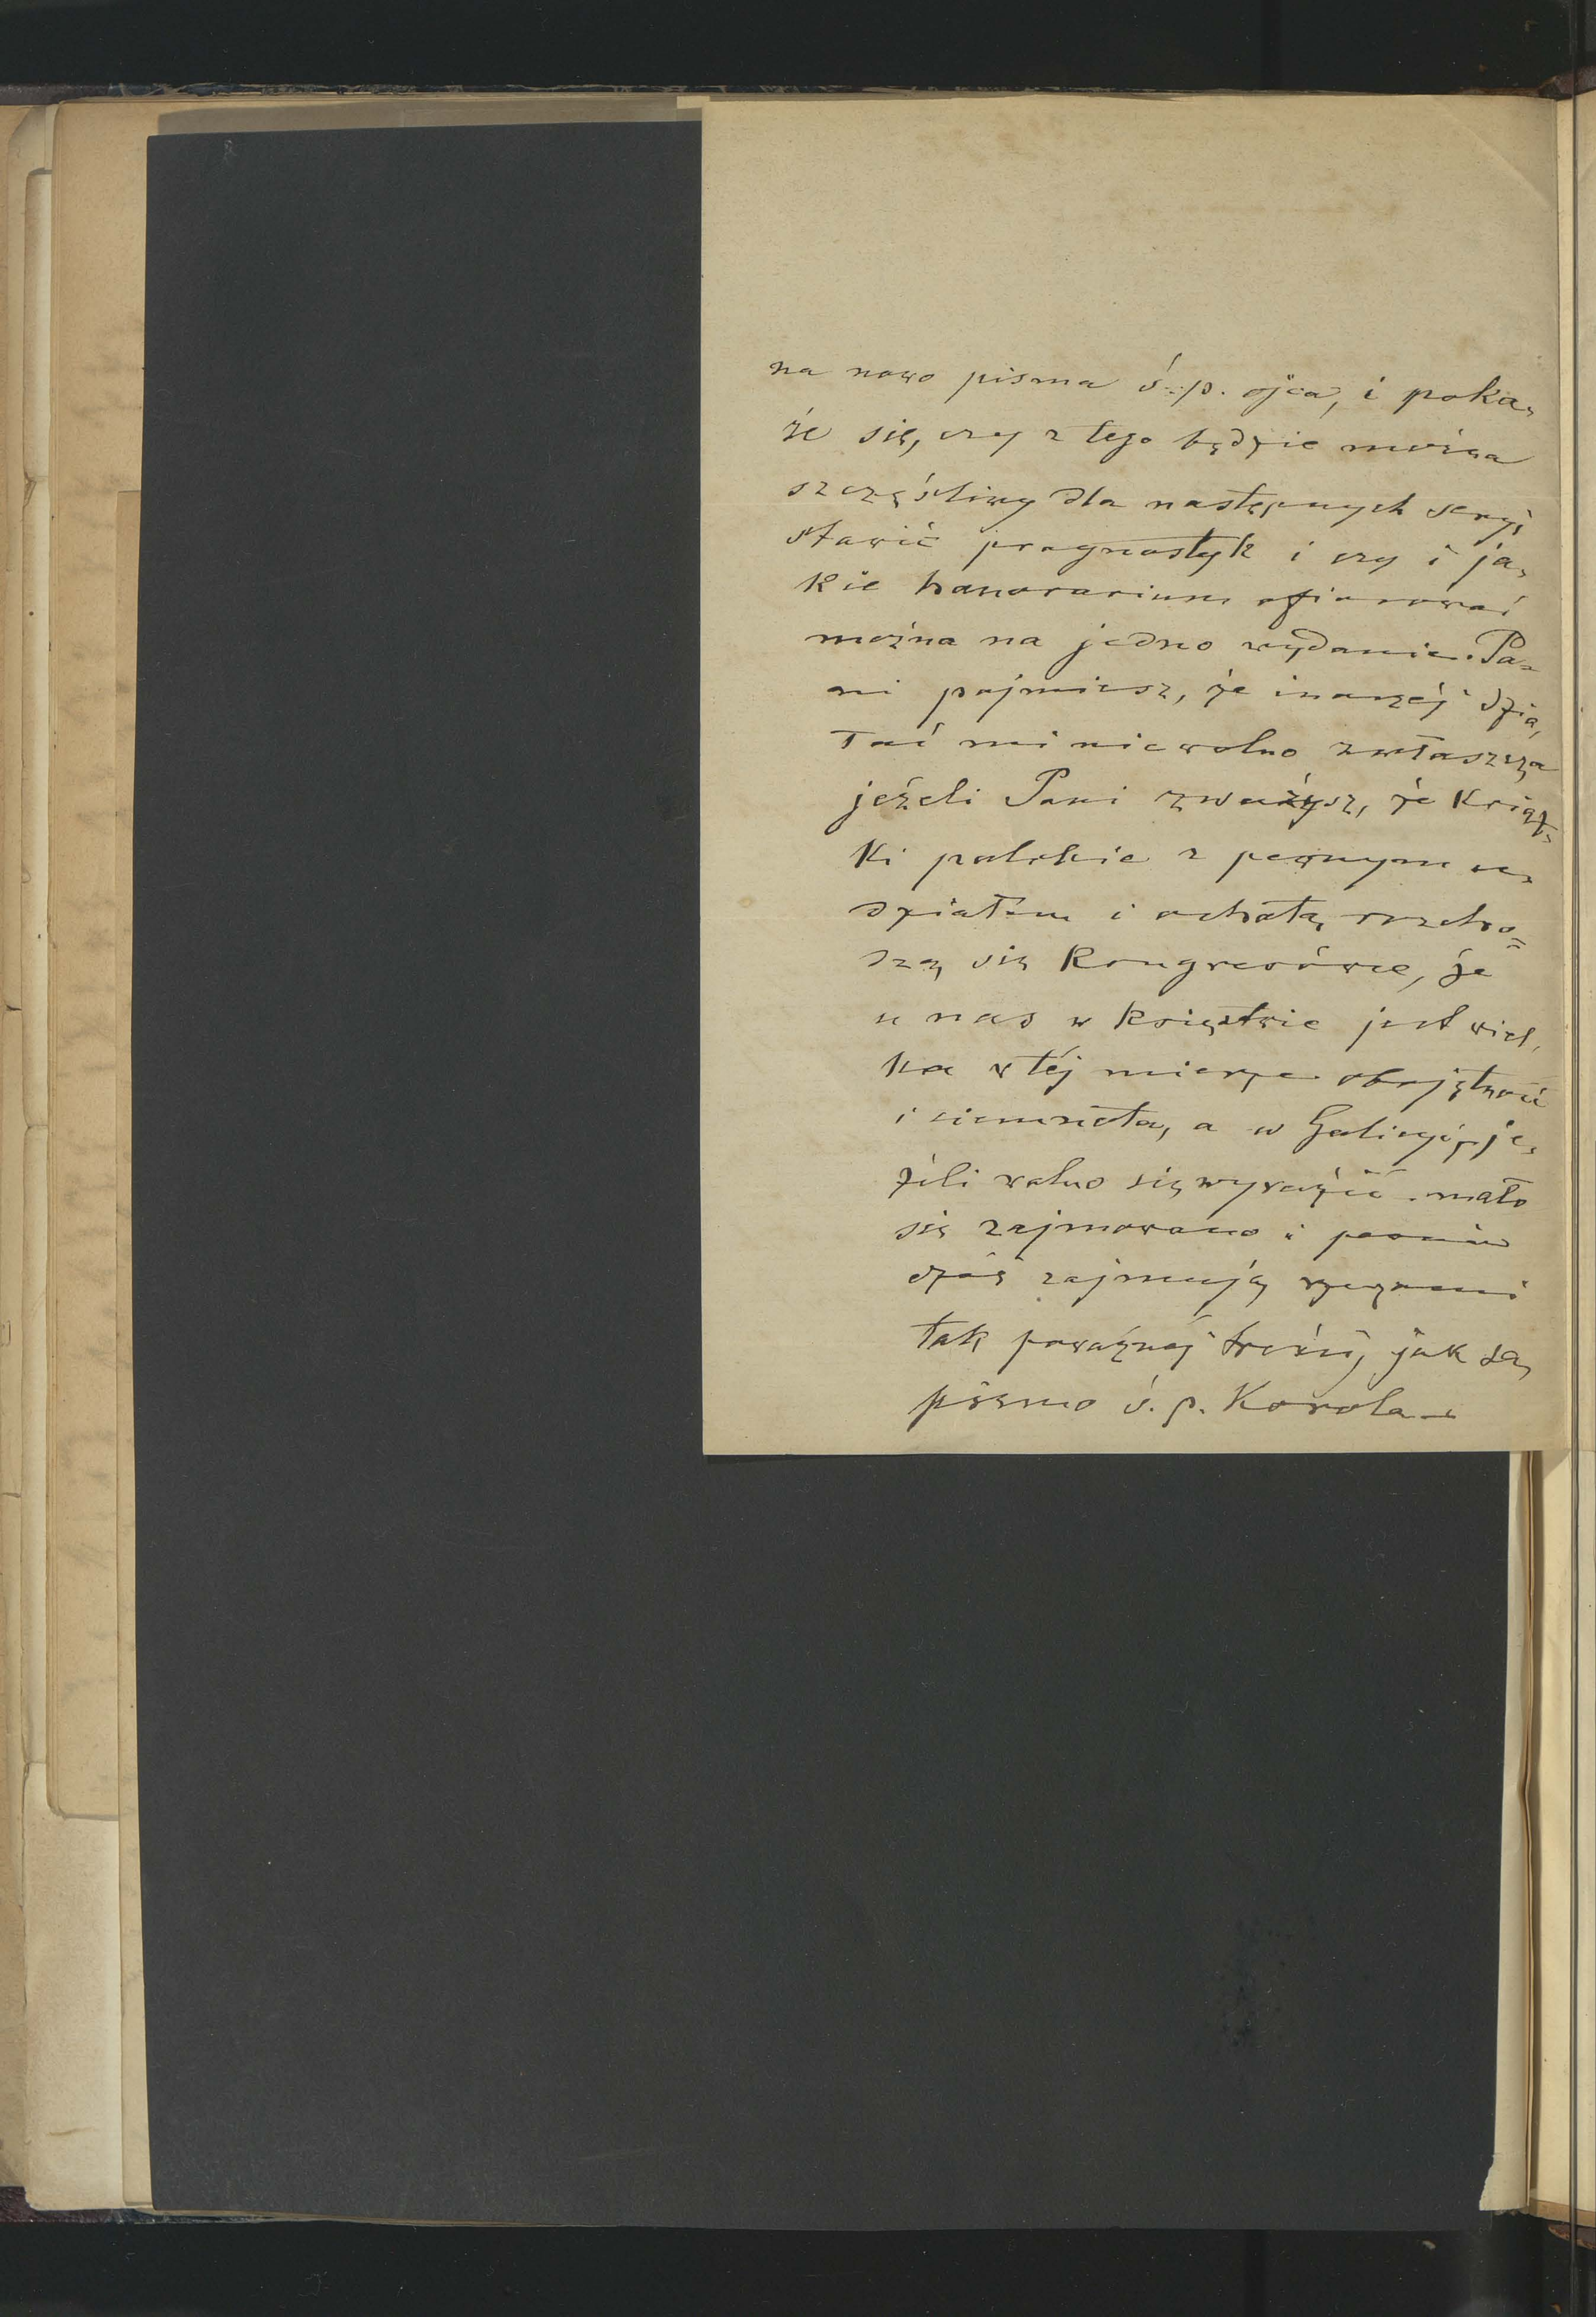 na nowo pisma ś. p. ojca, i poka-
że się, czy z tego będzie można
szczęśliwy dla następnych seryi
stawić prognostyk i czy i ja-
kie honorarium ofiarować
można na jedno wydanie. Pa-
ni pojmiesz, że inaczéj dzia-
łać mi nie wolno zwłaszcza
jeżeli Pani zważysz, że Książ-
ki polskie z pewnym u-
działem i ochotą rozcho-
dzą się Kongresówce, że
u nas w Księstwie jest wiel-
ka w téj mierze obojętność
i ciemnota, a w Galicyi, je-
żeli wolno się wyrazić mało
się zajmowano i
dziś zajmują rzeczami
tak poważnéj treści, jak są
pisma ś. p. Karola